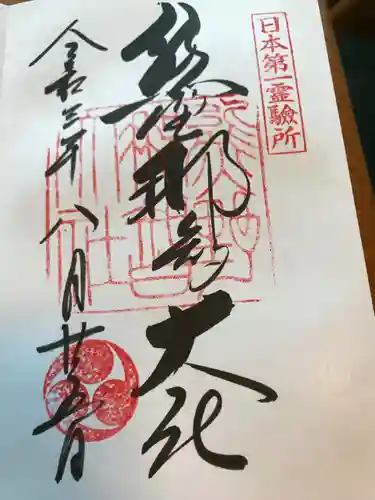 日本第一霊験所
熊野那智大社
令和三年八月廿五日